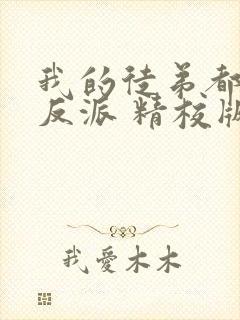 我的徒弟都
反派 精校版
我愛木木